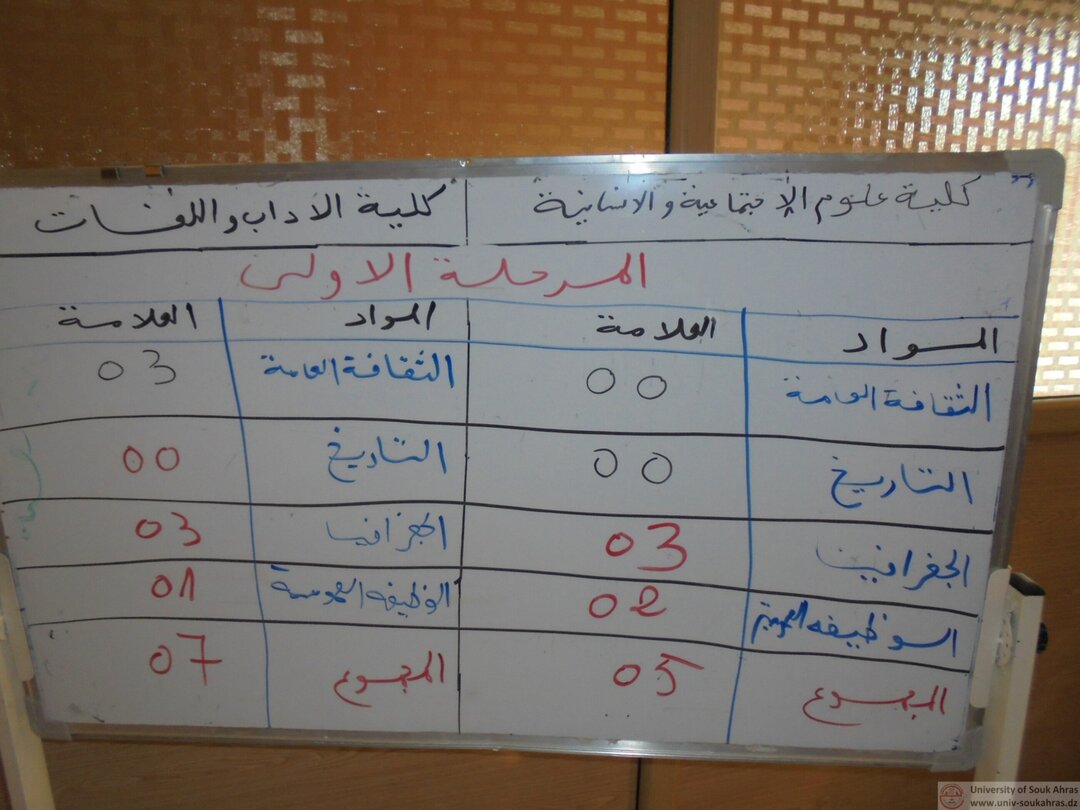 كلية علوم الإجتماعية والانسانية
كلية الاداب واللغات
المرحلة الاولى
المواد العلامة المواد العلامة
الثقافة العامة 00 الثقافة العامة 03
التاريخ 00 التاريخ 00
الجغرافيا 03 الجغرافيا 03
الوظيفة 02 الوظيفه 01
المجموع 05 المجموع 07
University of Souk Ahras
www.univ-soukahras.dz